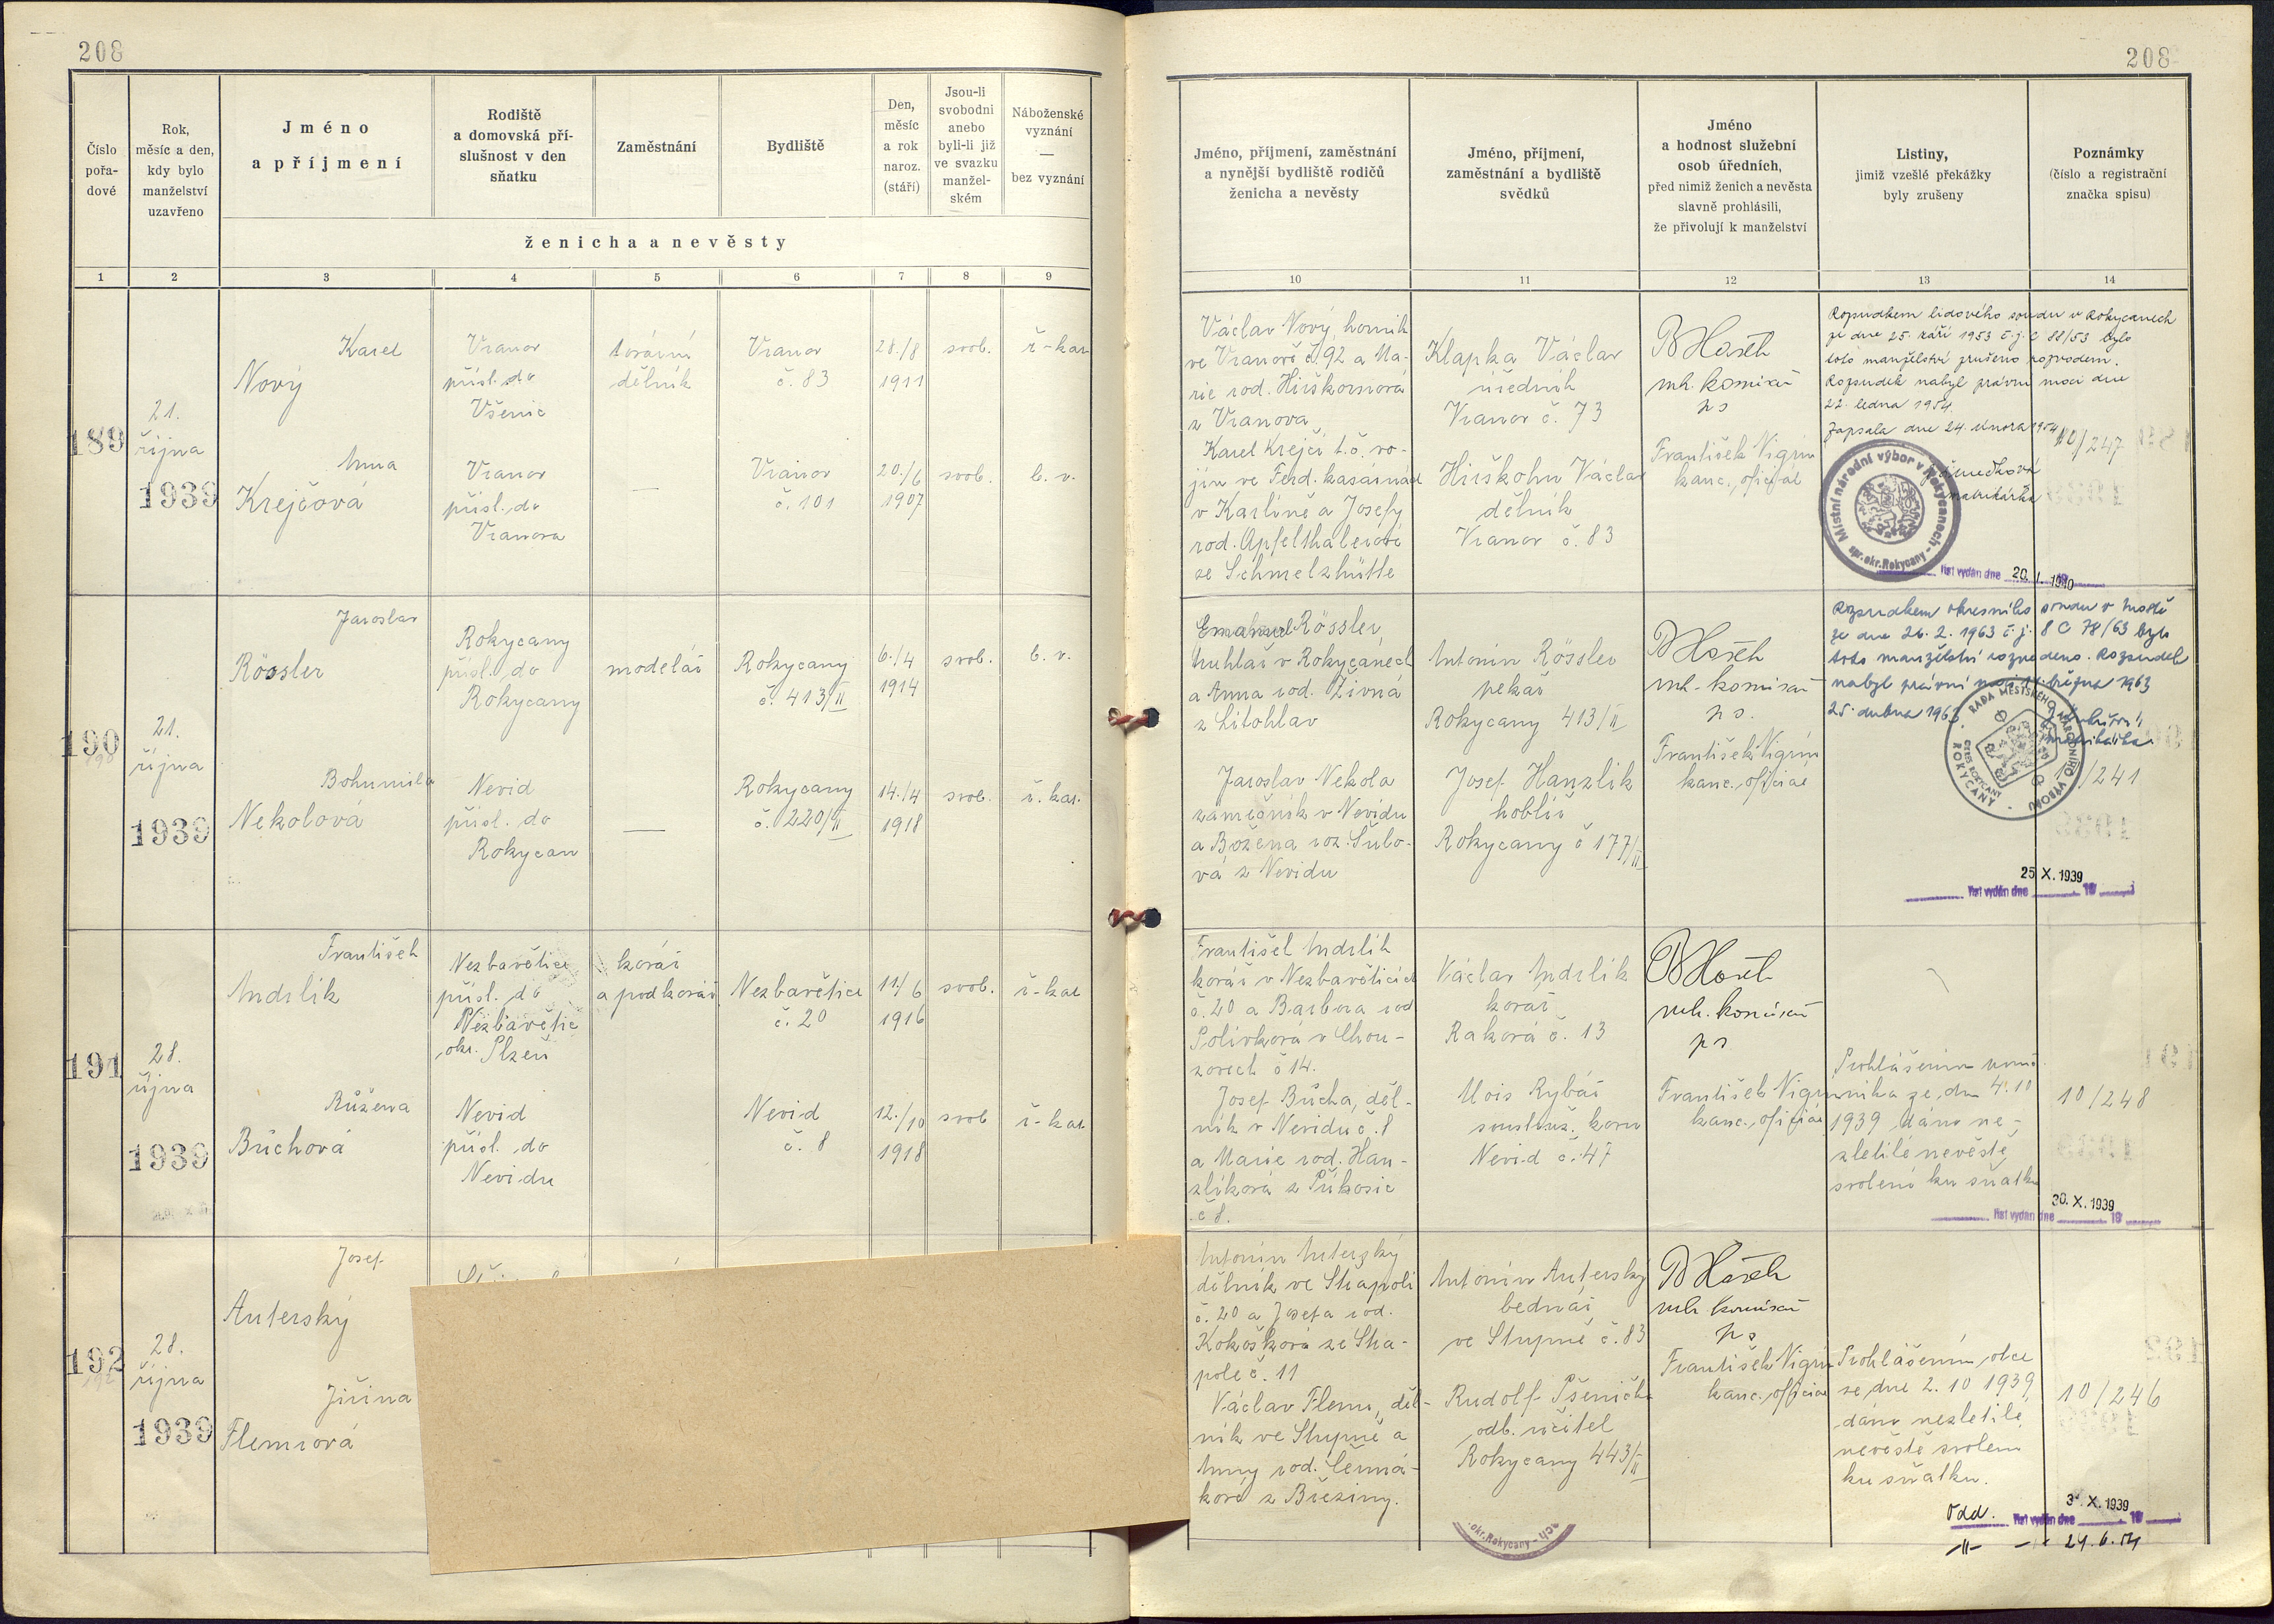 208
208
Číslo
pořa-
dové
Rok,
měsíc a den,
kdy bylo
manželství
uzavřeno
Jméno
a příjmení
Rodiště
a domovská pří-
slušnost v den
sňatku
Zaměstnání
Bydliště
Den,
měsíc
a rok
naroz.
(stáří)
Jsou-li
svobodni
anebo
byli-li již
ve svazku
manžel-
ském
Náboženské
vyznání
—
bez vyznání
ženicha a nevěsty
Jméno, příjmení, zaměstnání
a nynější bydliště rodičů
ženicha a nevěsty
Jméno, příjmení,
zaměstnání a bydliště
svědků
Jméno
a hodnost služební
osob úředních,
před nimiž ženich a nevěsta
slavně prohlásili,
že přivolují k manželství
Listiny,
jimiž vzešlé překážky
byly zrušeny
Poznámky
(číslo a registrační
značka spisu)
1 2 3 4 5 6 7 8 9
10 11 12 13 14
189
21.
října
1939
Karel
Nový
Vranov
přísl. do
Všenic
tovární
dělník
Vranov
č. 83
28./8
1911
svob.
ř-kat
Anna
Krejčová
Vranov
přísl. do
Vranova
—
Vranov
č. 101
20./6
1907
svob.
b. v.
Václav Nový, horník
ve Vranově č 92 a Ma-
rie rod. Hirškornová
z Vranova
Karel Krejčí t. č. vo-
jín ve Ferd. kasárnách
v Karlíně a Josefy
rod. Apfelthalerové
ze Schmelzhütte
Klapka Václav
úředník
Vranov č. 73
Hirškohn Václav
dělník
Vranov č. 83
mk. komisař
František Vigrin
kanc. oficiál
Rozsudkem lidového soudu v Rokycanech
ze dne 25. září 1953 č. j. C 88/53 bylo
toto manželství zrušeno rozvodem.
Rozsudek nabyl právní moci dne
22. ledna 1954.
Zapsala dne 24. února 1954
matrikářka
10/247
Místní národní výbor v Rokycanech
spr. okr. Rokycany
list vydán dne 20. I. 1940
190
21.
října
1939
Jaroslav
Rössler
Rokycany
přísl. do
Rokycany
modelář
Rokycany
č. 413/II
6./4
1914
svob.
b. v.
Bohumila
Nekolová
Nevid
přísl. do
Rokycan
—
Rokycany
č. 220/II
14./4
1918
svob.
ř. kat.
Emanuel Rössler,
truhlář v Rokycanech
a Anna rod. Živná
z Litohlav
Jaroslav Nekola
zámečník v Nevidu
a Božena roz. Šulo-
vá z Nevidu
Antonín Rössler
pekař
Rokycany 413/II
Josef Hanzlík
hoblíř
Rokycany č 177/II
mk. komisař
František Vigrin
kanc. oficiál
Rozsudkem okresního soudu v Mostě
ze dne 26. 2. 1963 č. j. 8 C 78/63 bylo
toto manželství rozvedeno. Rozsudek
nabyl právní moci března 1963
25. dubna 1963
matrikářka
/241
RADA MĚSTSKÉHO NÁRODNÍHO VÝBORU
ROKYCANY
list vydán dne 25 X. 1939
191
28.
října
1939
František
Andrlík
Nezbavětice
přísl. do
Nezbavětic
okr. Plzeň
kovář
a podkovář
Nezbavětice
č. 20
11./6
1916
svob.
ř-kat
Růžena
Bůchová
Nevid
přísl. do
Nevidu
Nevid
č. 8
12./10
1918
svob
ř-kat
František Andrlík
kovář v Nezbavěticích
č. 20 a Barbora rod
Polívková v Chou-
zovech č 14.
Josef Bůcha, děl-
ník v Nevidu č. 8
a Marie rod. Han-
zlíková z Příkosic
č 8.
Václav Andrlík
kovář
Raková č. 13
Alois Rybář
soustruž. kovu
Nevid č. 47
mk. komisař
František Vigrin
kanc. oficiál
Prohlášením poruč-
níka ze dne 4. 10
1939 dáno ne-
zletilé nevěstě
svolení ku sňatku
10/248
list vydán dne 30. X. 1939
192
28.
října
1939
Josef
Auterský
Jiřina
Flemrová
Antonín Auterský
dělník ve Skapoli
č. 20 a Josefa rod.
Kokošková ze Ska-
pole č. 11
Václav Flemr, děl-
ník ve Stupně a
Anny rod. Čermá-
kové z Březiny.
Antonín Auterský
bednář
ve Stupně č. 83
Rudolf Pšenička
odb. učitel
Rokycany 443/II
mk. komisař
František Vigrin
kanc. oficiál
Prohlášením otce
ze dne 2. 10 1939
dáno nezletilé
nevěstě svolení
ku sňatku.
10/246
Odd. list vydán dne 3. X. 1939
-II- 24. 6. 54
okr. Rokycany